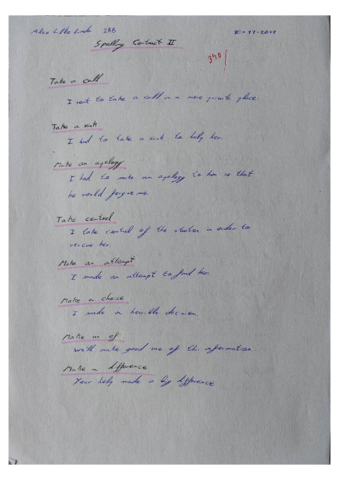 Spelling Contract II
Take a call
I went to take a call in a more private place.
Take a risk
I had to take a risk to help her.
Make an apology
I had to make an apology to him so that
he would forgive me.
Take control
I take control of the situation in order to
rescue her.
Make an attempt
I made an attempt to find her.
Make a choice
I made a horrible decision.
Make use of
We'll make good use of this information.
Make a difference
Your help made a big difference